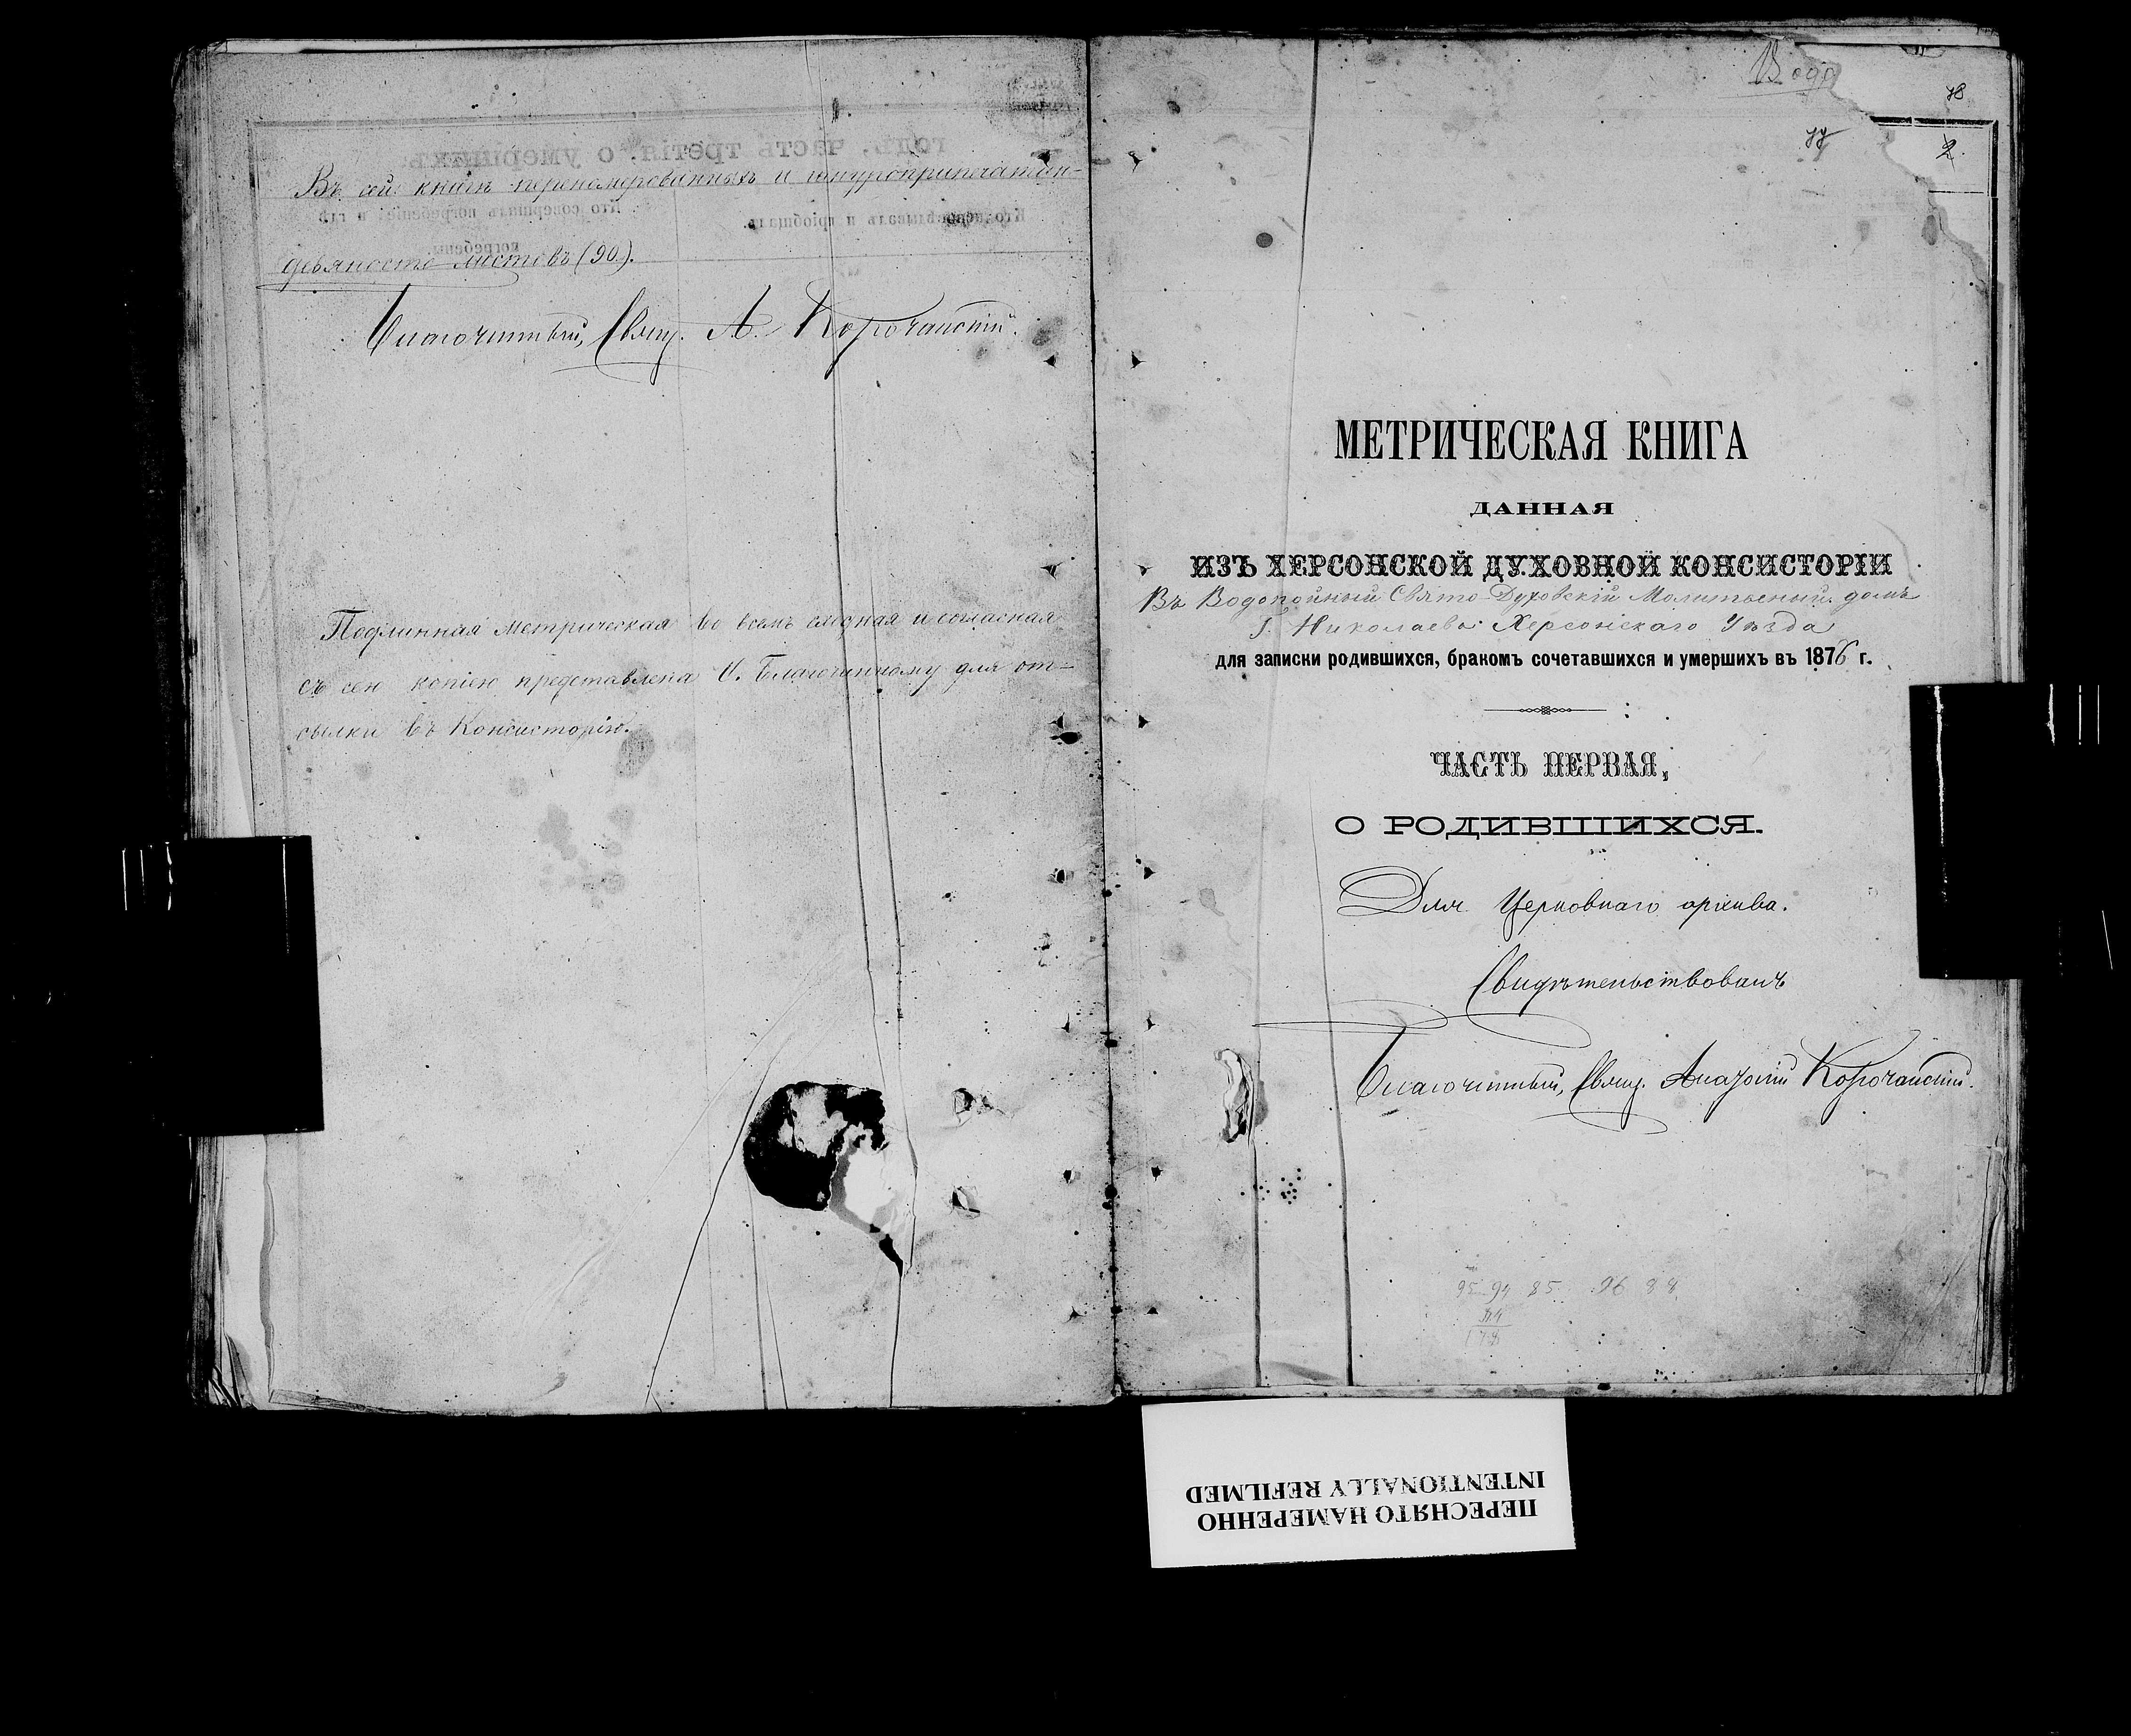 Въ сей книгѣ перенумерованныхъ и шнуроприпечатан-
девяносто листовъ (90).
Благочинный, Свящ. А. Корочанскій.
Подлинная Метрическая во всемъ сходная и согласная
съ сею копіею представлена О. Благочинному для от-
сылки въ Консисторію.
годъ, часть третія, о умершихъ
Кто совершалъ погребеніе и гдѣ погребены.
Кто исповѣдывалъ и пріобщалъ.
Водо
78
77
2
МЕТРИЧЕСКАЯ КНИГА
ДАННАЯ
ИЗЪ ХЕРСОНСКОЙ ДУХОВНОЙ КОНСИСТОРІИ
Въ Водопойный Свято-Духовскій Молитвенный домъ
Г. Николаева Херсонскаго Уѣзда
для записки родившихся, бракомъ сочетавшихся и умершихъ въ 1876 г.
ЧАСТЬ ПЕРВАЯ,
О РОДИВШИХСЯ.
Для Церковнаго архива.
Свидѣтельствовалъ
Благочинный, Свящ. Корочанскій.
95 94 85 96 88
ПЕРЕСНЯТО НАМЕРЕННО
INTENTIONALLY REFILMED